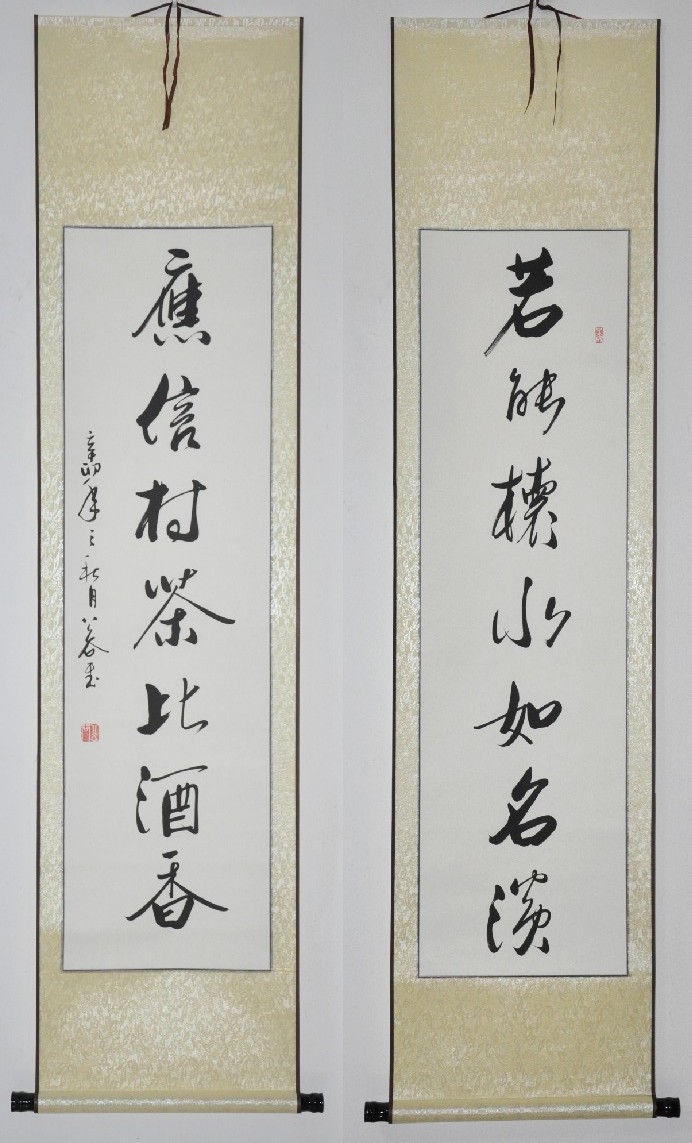 若能櫰水如名
應信村茶比酒香
辛卯年之秋月